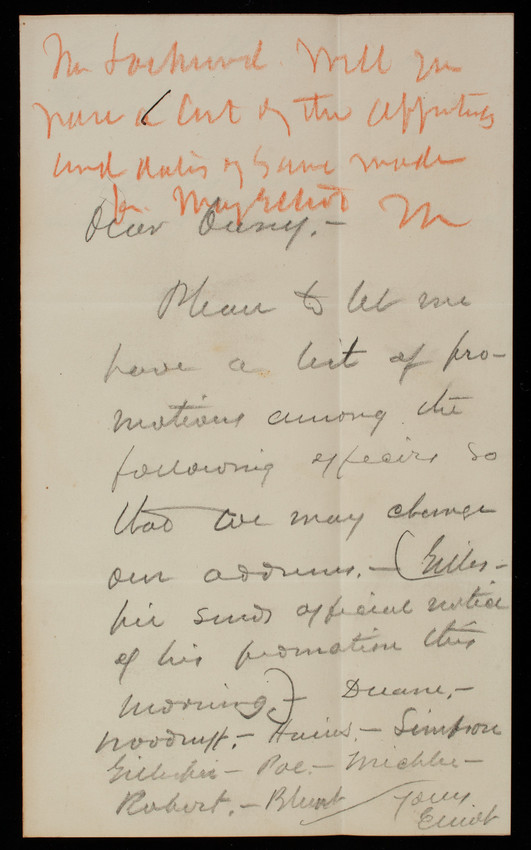 Mr Lockwood Will you
have a list of the appointees
and dates of same made
for
Dear Casey,-
Please to let me
have a list of pro-
motions among the
following officers so
that we may change
our address.- (Gilles-
pie sends official notice
of his promotion this
morning.)- Duane,-
Woodruff.- Hains.- Simpson
Gillespie- Poe.- Michler-
Robert.- Blunt
Yours
Elliot